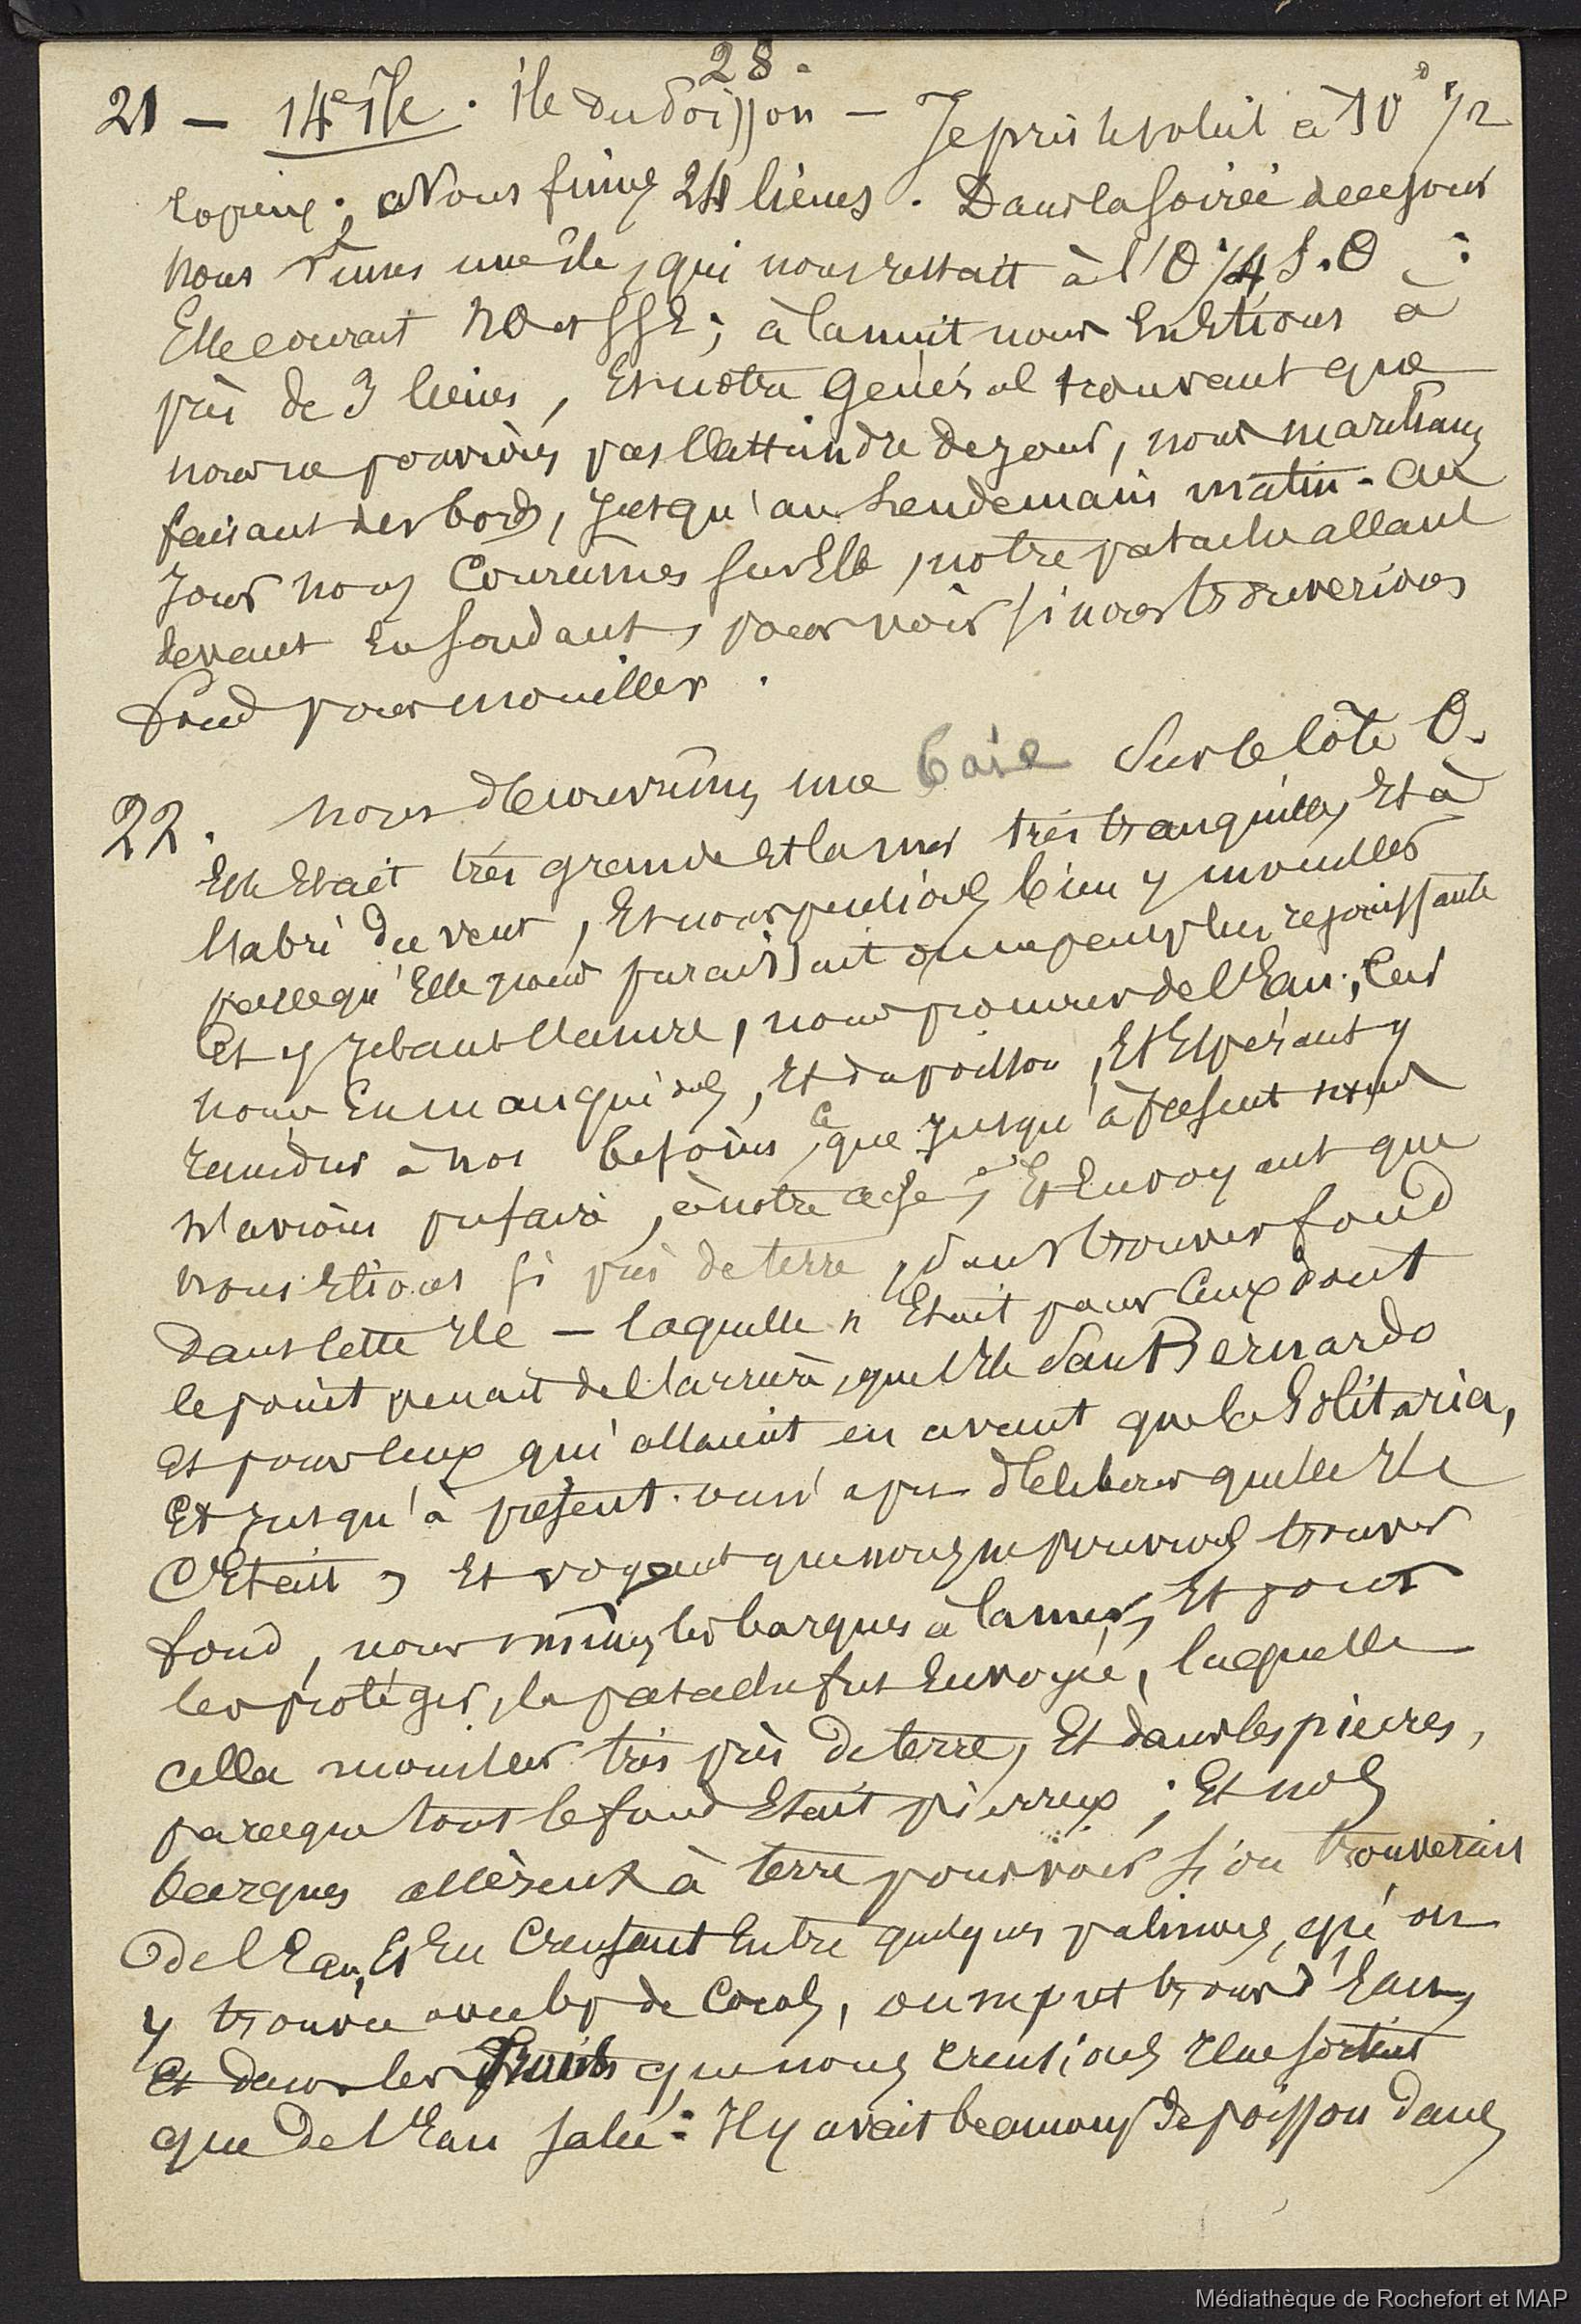 28.
21 – 14e Ile. île du Poisson – Je pris le soleil à 10° 1/2
copieux; Nous fîmes 24 lieues. Dans la soirée de ce jour
nous vîmes une île, qui nous restait à l'O 1/4 S.O.:
Elle courait NO et SSE; à la nuit nous en étions à
près de 3 lieues, Et notre Général trouvant que
nous ne pouvions pas l'atteindre de jour, nous marchâmes
faisant des bords, jusqu'au lendemain matin. Au
jour nous courûmes sur Elle, notre patache allant
devant en sondant, pour voir si nous trouverions
fond pour mouiller.
22. nous découvrîmes une baie sur le côté O.
Elle était très grande et la mer très tranquille, Et à
l'abri du vent, Et nous voulions bien y mouiller
parce qu'Elle nous paraissait on ne peut plus réjouissante
Et y jetant l'ancre, nous pourvoir de l'Eau; car
nous En manquions, Et du poisson, Et Espérant y
remédier à nos besoins, ce que jusqu'à présent nous
n'avions pu faire, à notre aise; Et En voyant que
nous étions si près de terre, sans trouver fond
dans cette Ile – laquelle n'était pour ceux dont
le point venait de l'arrière, que l'Ile San Bernardo
Et pour ceux qui allaient en avant que la Solitaria,
Et jusqu'à présent on n'a pu délibérer quelle Ile
C'Etait, Et voyant que nous ne pouvions trouver
fond, nous mîmes les barques à la mer, Et pour
les protéger, la patache fut Envoyée, laquelle
alla mouiller très près de terre, Et dans les pierres,
parce que tout le fond Etait pierreux; Et nos
barques allèrent à terre pour voir si on trouverait
de l'Eau, Et En Creusant Entre quelques palmiers, qu'on
y trouva avec de cocos, on ne put trouver d'Eau,
Et dans les Puits que nous creusions il ne sortait
que de l'Eau salée: Il y avait beaucoup de poisson dans
Médiathèque de Rochefort et MAP